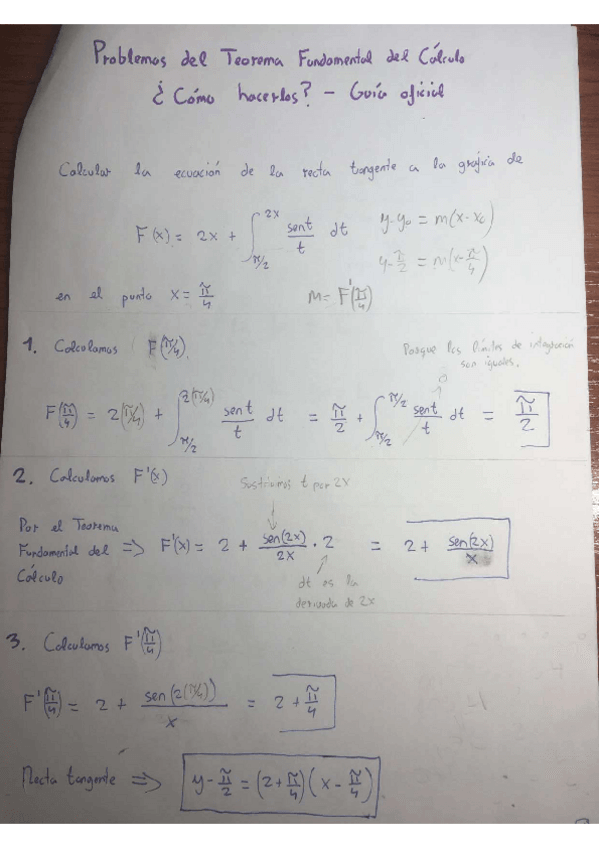 Problemas del Teorema Fundamental del Cálculo
¿Cómo hacerlos? - Guía oficial
Calcular la ecuación de la recta tangente a la gráfica de
F(x) = 2x + ∫_{π/2}^{2x} sen t / t dt
y-y₀ = m(x-x₀)
y-π/2 = m(x-π/4)
en el punto x = π/4
m = F'(π/4)
1. Calculamos F(π/4)
Porque los límites de integración
son iguales.
0
F(π/4) = 2(π/4) + ∫_{π/2}^{2(π/4)} sen t / t dt = π/2 + ∫_{π/2}^{π/2} sen t / t dt = π/2
2. Calculamos F'(x)
Sustituimos t por 2x
Por el Teorema
Fundamental del => F'(x) = 2 + sen(2x)/2x · 2 = 2 + sen(2x)/x
Cálculo
dt es la
derivada de 2x
3. Calculamos F'(π/4)
F'(π/4) = 2 + sen(2(π/4))/x = 2 + π/4
Recta tangente => y - π/2 = (2+π/4)(x - π/4)